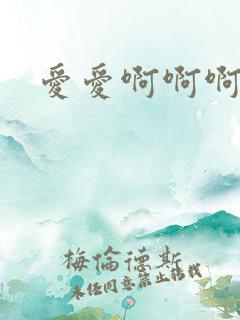 愛愛啊啊啊
梅倫德斯
未经同意禁止转载